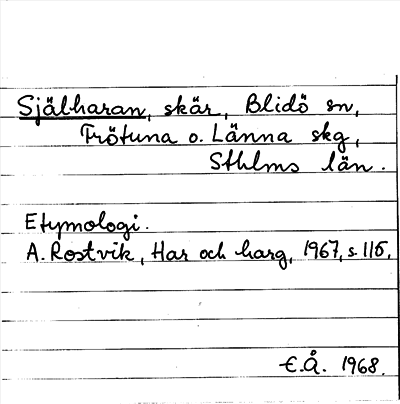 Själharan, skär, Blidö sn,
Frötuna o. Länna skg,
Sthlms län.
Etymologi.
A. Rostvik, Har och harg, 1967, s. 115.
E.Å. 1968.